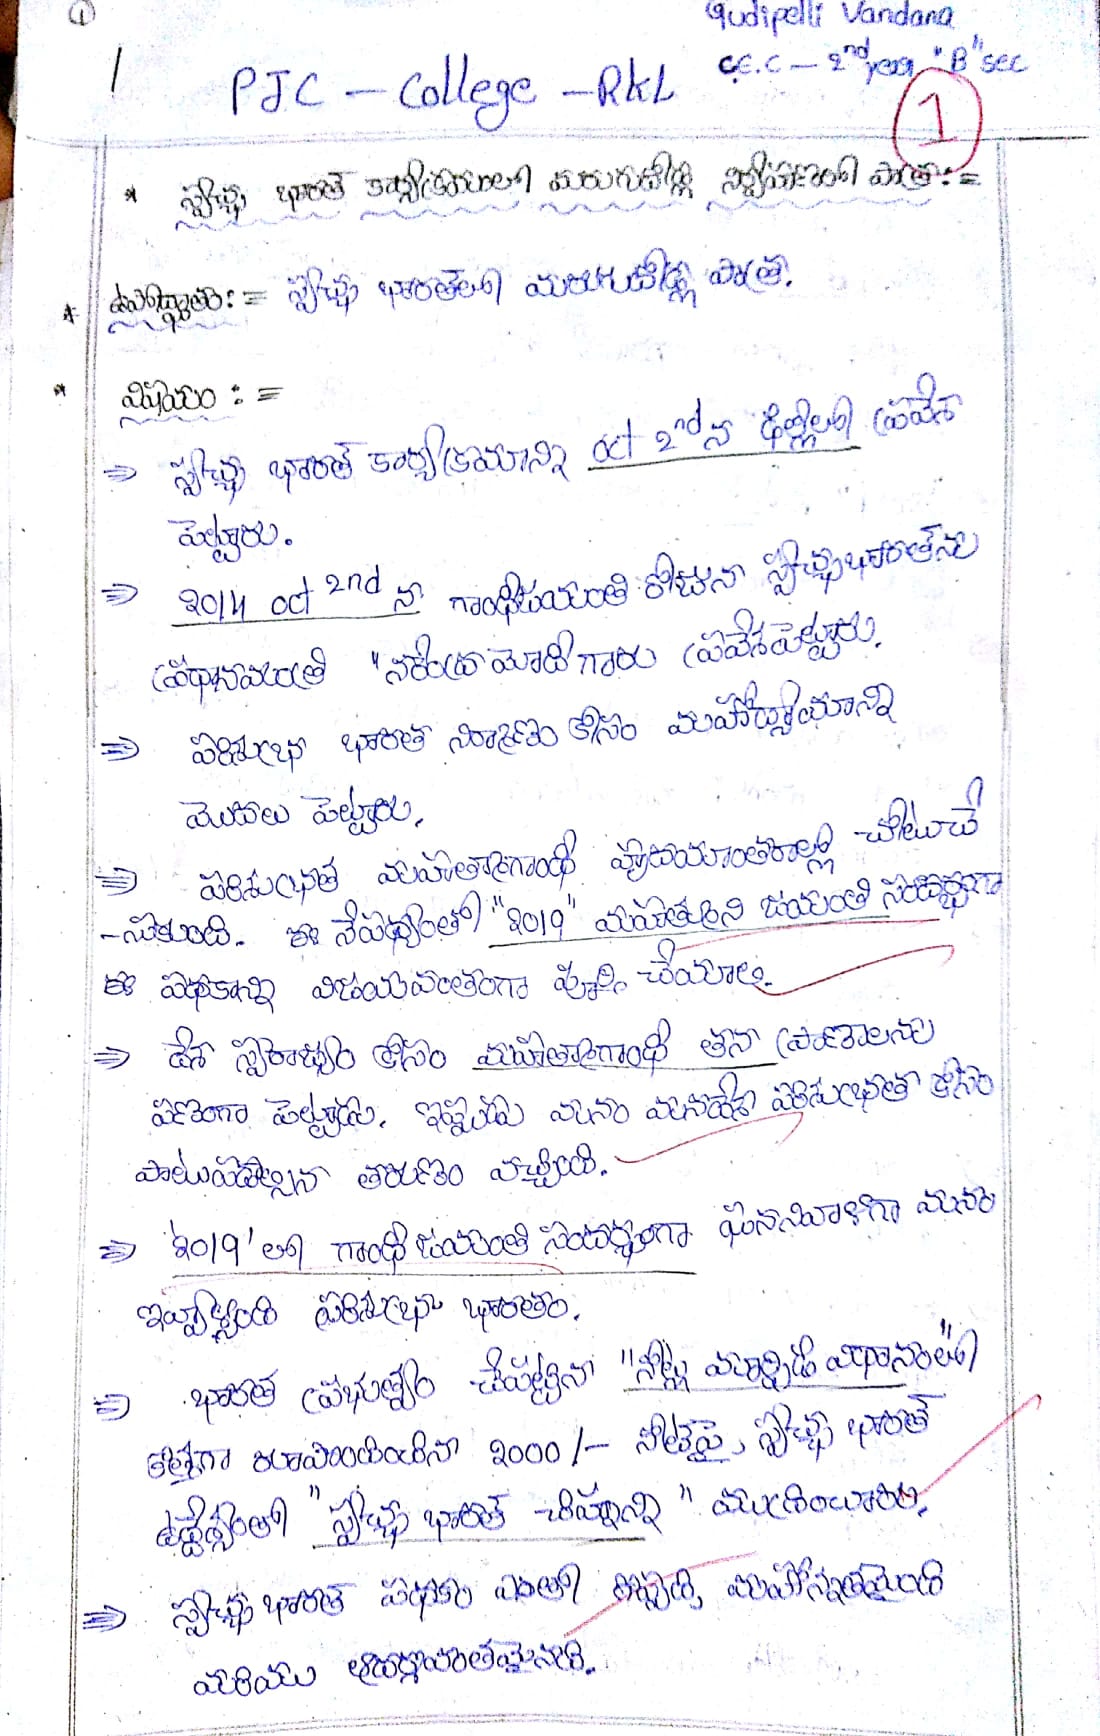 ①
Gudipelli Vandana
C.E.C – 2nd year "B" sec
1
PJC – College – RKL
1
* స్వచ్ఛ భారత్ కార్యక్రమంలో మరుగుదొడ్ల నిర్వహణలో పాత్ర:=
* ఉపోద్ఘాతం:= స్వచ్ఛ భారత్‌లో మరుగుదొడ్ల పాత్ర.
* విషయం := 
⇒ స్వచ్ఛ భారత్ కార్యక్రమాన్ని oct 2nd న ఢిల్లీలో ప్రవేశ
పెట్టారు.
⇒ 2014 oct 2nd న గాంధీజయంతి రోజునా స్వచ్ఛభారత్‌ను
ప్రధానమంత్రి "నరేంద్రమోదీగారు ప్రవేశపెట్టారు.
⇒ పరిశుభ్ర భారత నిర్మాణం కోసం
మొదలు పెట్టారు.
⇒ పరిశుభ్రత మహాత్మాగాంధీ హృదయాంతరాల్లో చోటుచే
-సుకుంది. ఈ నేపథ్యంతో "2019" మహాత్ముని జయంతి సందర్భంగా
ఈ పథకాన్ని విజయవంతంగా పూర్తి చేయాలి.
⇒ దేశ స్వరాజ్యం కోసం మహాత్మాగాంధీ తన ప్రాణాలను
పణంగా పెట్టారు. ఇప్పుడు మనం మనదేశ పరిశుభ్రత కోసం
పాటుపడాల్సిన తరుణం వచ్చింది.
⇒ '2019' లో గాంధీ జయంతి సందర్భంగా ఘననివాళిగా మనం
ఇవ్వాల్సింది పరిశుభ్ర భారతం.
⇒ భారత ప్రభుత్వం చేపట్టినా "నోట్ల మార్పిడి విధానంలో"
కొత్తగా రూపొందించిన 2000/– నోట్లపై, స్వచ్ఛ భారత్
ఉద్దేశ్యంతో "స్వచ్ఛ భారత్ చిహ్నాన్ని" ముద్రించారు.
⇒ స్వచ్ఛ భారత్ పథకం ఎంతో మహోన్నతమైంది
మరియు ఆదర్శవంతమైనది.